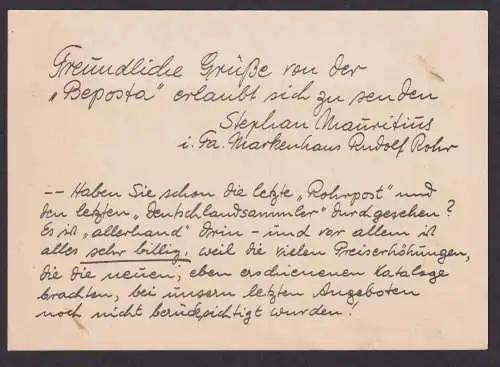 Freundliche Grüße von der
„Beposta" erlaubt sich zu senden
Stephan Mauritius
i. Fa. Markenhaus Rudolf Rohr
-- Haben Sie schon die letzte „Rohrpost" und
den letzten „Deutschlandsammler" durchgesehen?
Es ist „allerhand" drin - und vor allem ist
alles sehr billig, weil die vielen Preiserhöhungen,
die die neuen, eben erschienenen Kataloge
brachten, bei unsern letzten Angeboten
noch nicht berücksichtigt wurden!